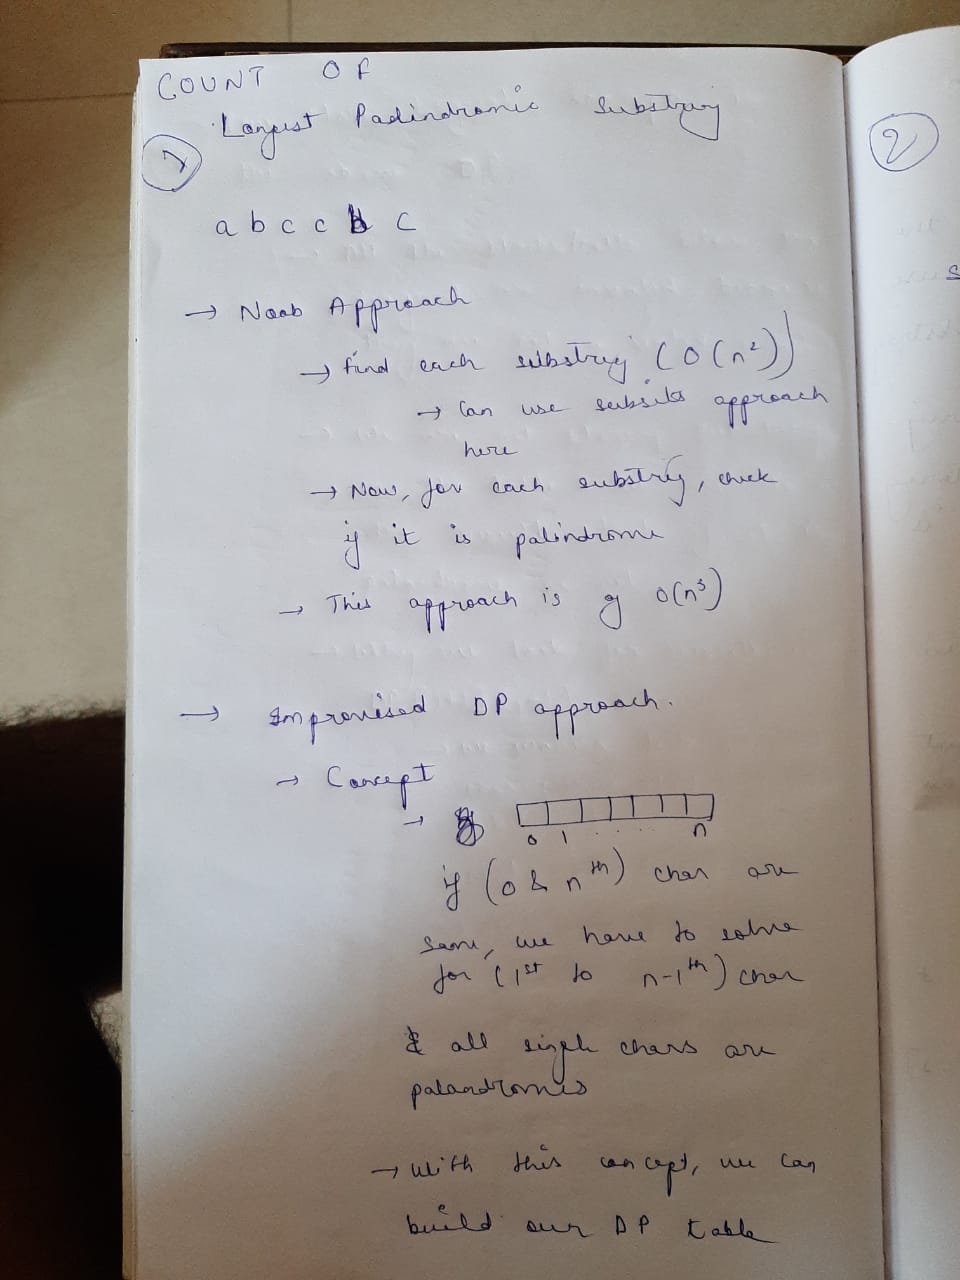 COUNT OF
Longest Padindromic Substring
1
2
a b c c b c
→ Noob Approach
→ find each substring (O(n²))
→ Can use subsets approach
here
→ Now, for each substring, check
if it is palindrome
→ This approach is of O(n³)
→ Improvised DP approach.
→ Concept
→
0 1 ..... n
if (0 & nth) char are
same, we have to solve
for (1st to n-1th) char
& all single chars are
palandromes
→ With this concept, we can
build our DP table